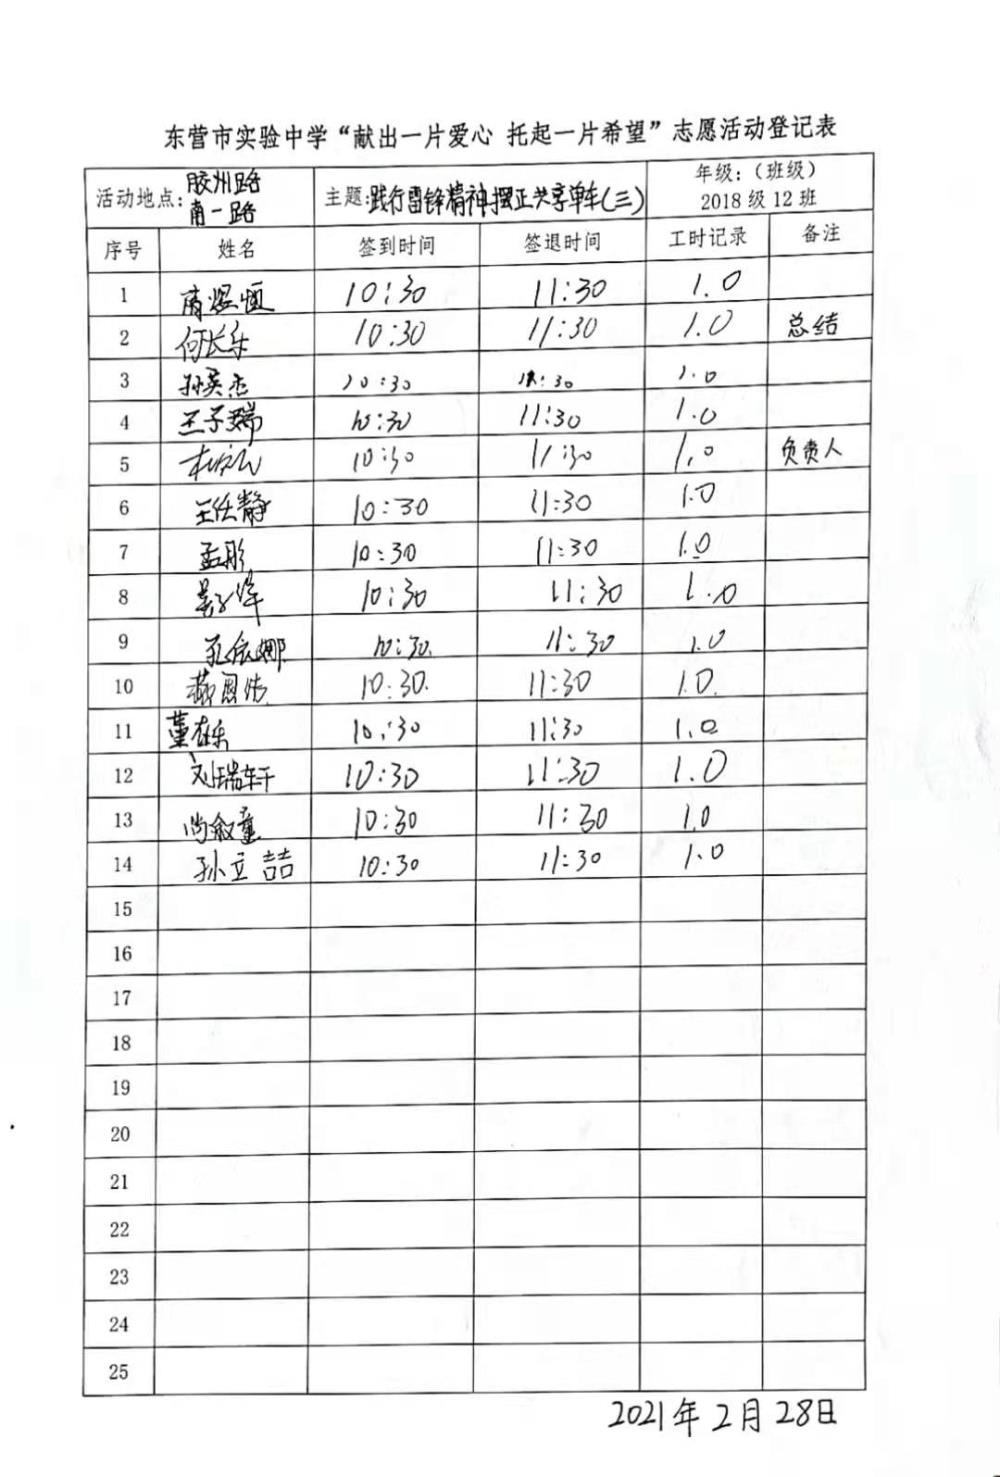 东营市实验中学“献出一片爱心 托起一片希望”志愿活动登记表
活动地点:胶州路 南一路 主题:践行雷锋精神摆正共享单车(三) 年级:(班级) 2018 级 12 班
序号 姓名 签到时间 签退时间 工时记录 备注
1 10:30 11:30 1.0
2 何长乐 10:30 11:30 1.0 总结
3 孙英杰 10:30 11:30 1.0
4 王子瑞 10:30 11:30 1.0
5 10:30 11:30 1.0 负责人
6 王任静 10:30 11:30 1.0
7 孟彤 10:30 11:30 1.0
8 10:30 11:30 1.0
9 孔依娜 10:30 11:30 1.0
10 10:30 11:30 1.0
11 董在乐 10:30 11:30 1.0
12 刘瑞轩 10:30 11:30 1.0
13 尚叙童 10:30 11:30 1.0
14 孙立喆 10:30 11:30 1.0
15
16
17
18
19
20
21
22
23
24
25
2021年2月28日